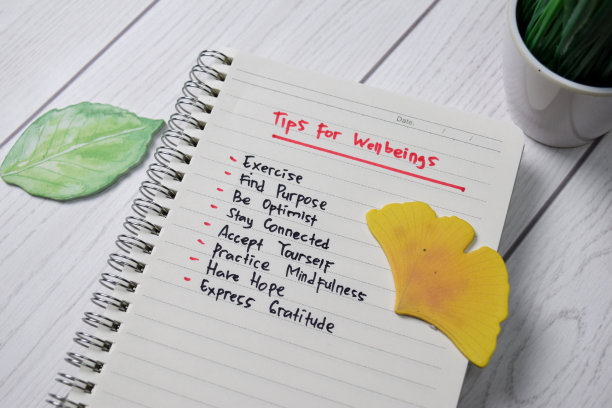 Date.        /        /
Tips For Wellbeings
Exercise
Find Purpose
Be Optimist
Stay Connected
Accept Yourself
Practice Mindfulness
Have Hope
Express Gratitude